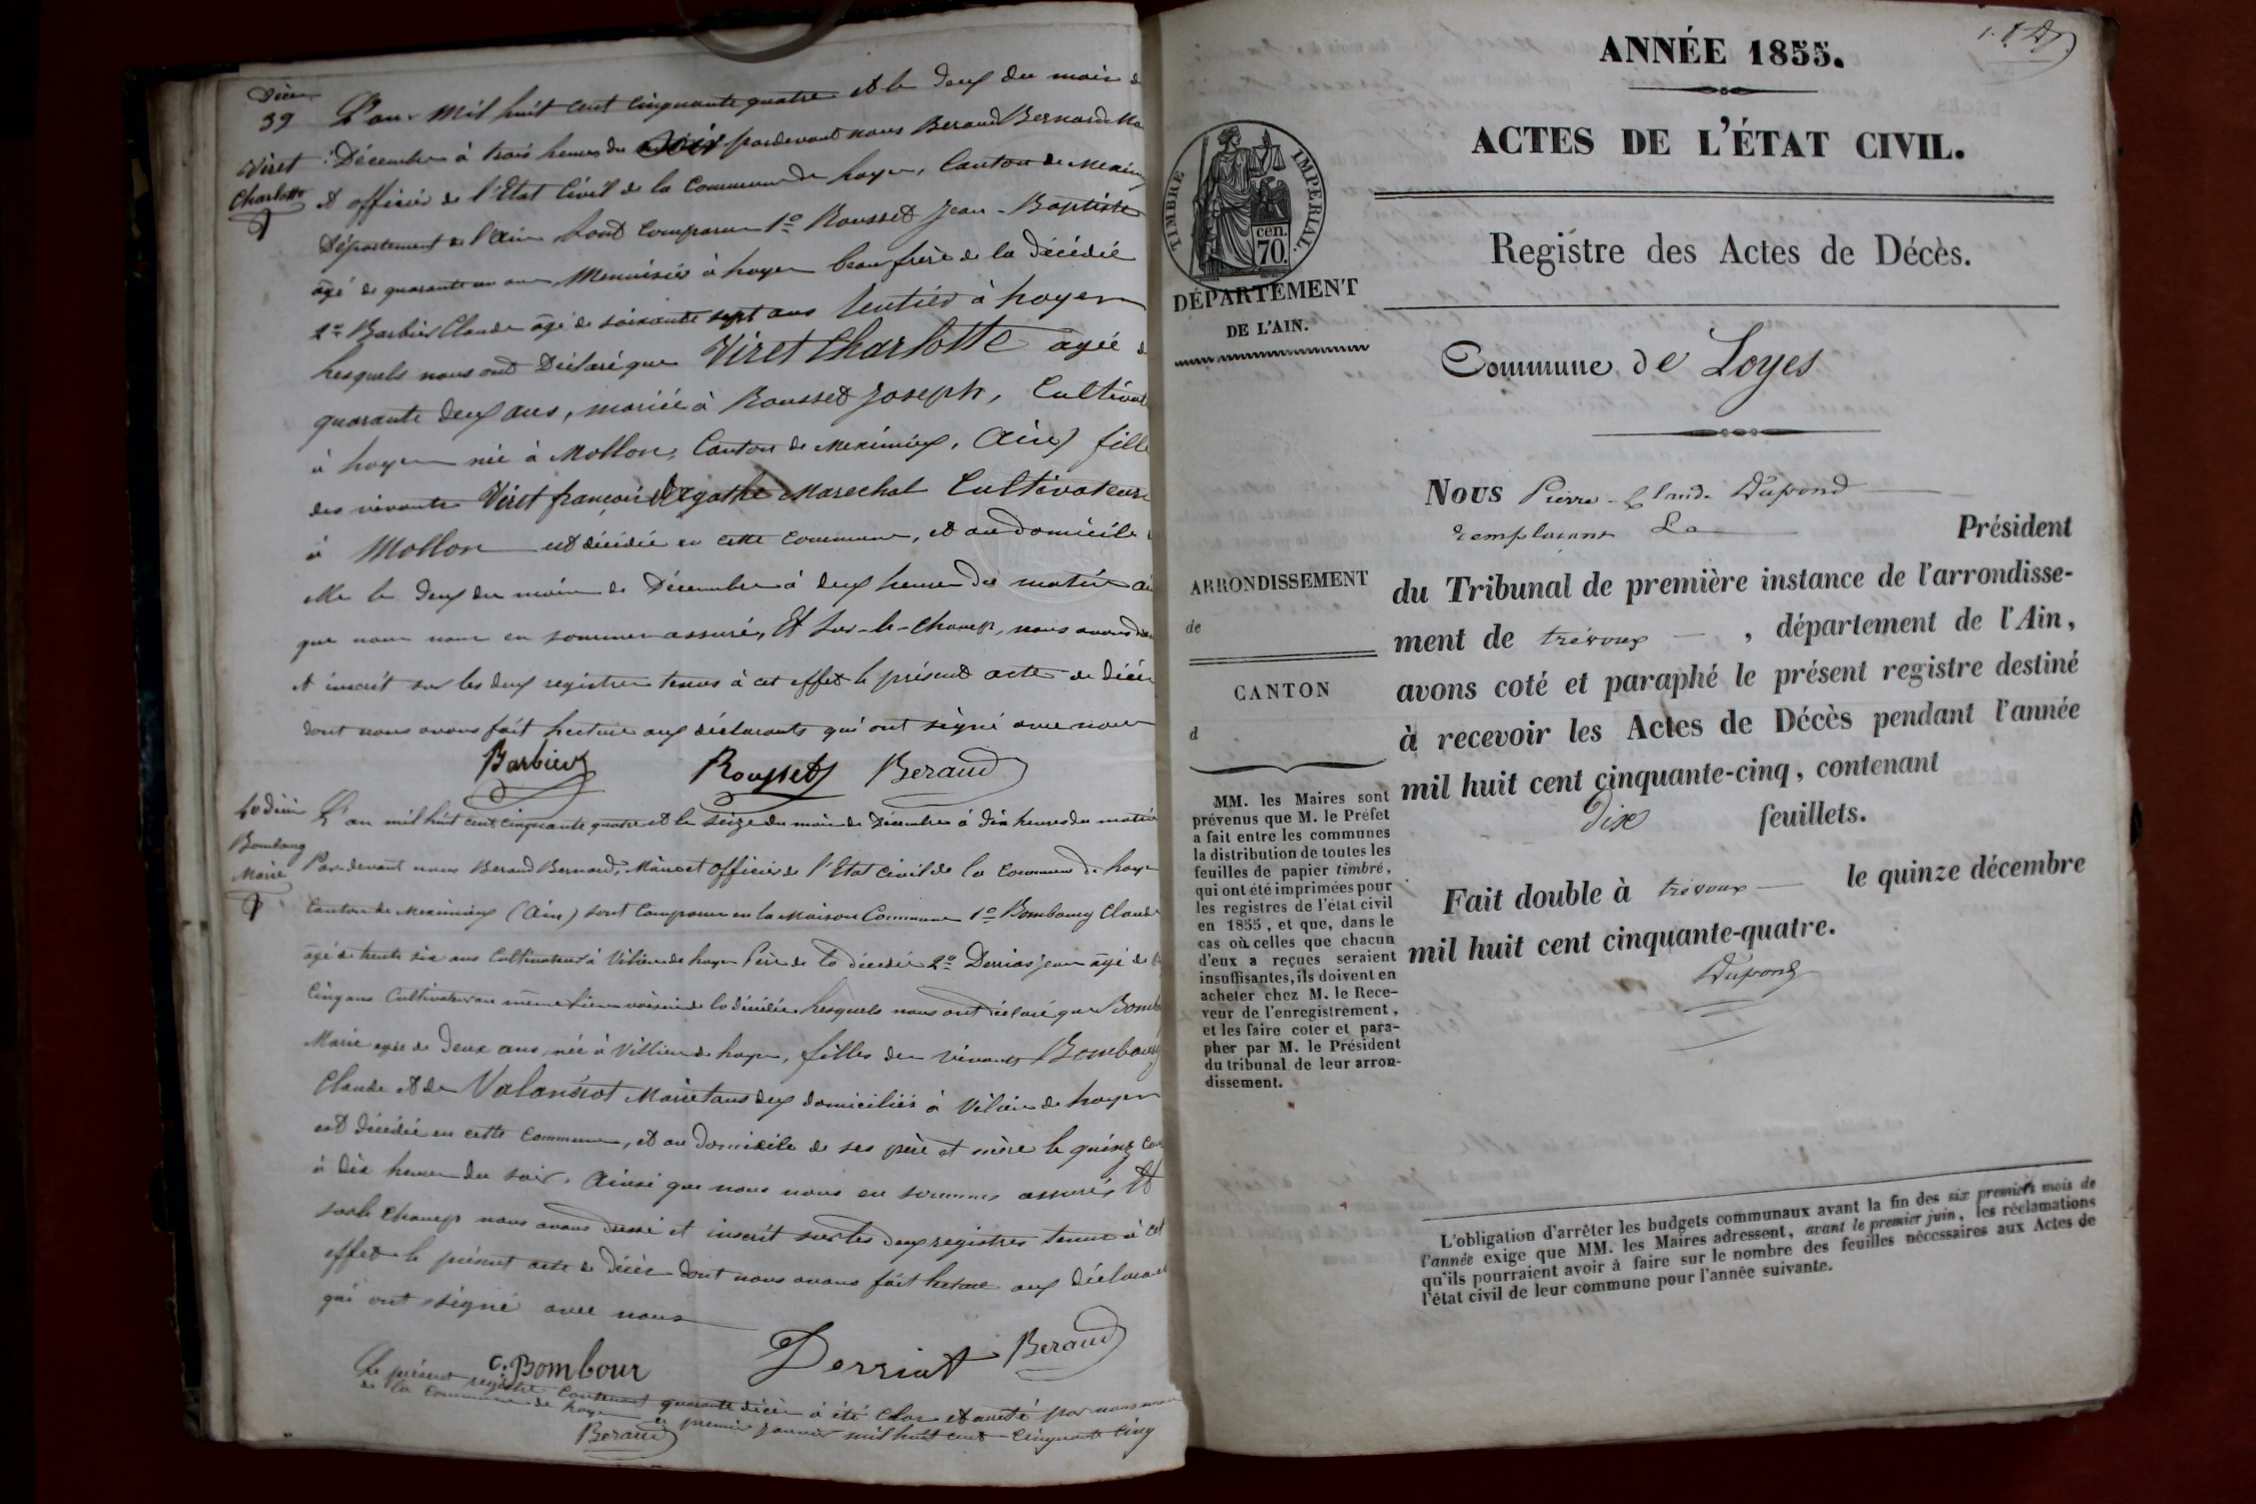 Décès
39
Viret
Charlotte
L'an mil huit cent cinquante quatre et le deux du mois de
Décembre à trois heures du soir pardevant nous Beraud Bernard
et officier de l'Etat Civil de la Commune de Loyes, Canton de
Département de l'Ain sont comparus 1º Rousset Jean-Baptiste
âgé de quarante un ans Menuisier à Loyes beau frère de la décédée
2º Barbier Claude âgé de soixante sept ans Rentier à Loyes
Lesquels nous ont Déclaré que Viret Charlotte agée de
quarante deux ans, mariée à Rousset Joseph, Cultivat
à Loyes née à Mollon, Canton de Meximieux, (Ain) fille
des vivants Viret françois et Agathe Marechal Cultivateurs
à Mollon est décédée en cette commune, et au domicile
le deux du mois de Décembre à deux heures du matin
que nous nous en sommes assurés, Et sur-le-champ, nous avons
et inscrit sur les deux registres tenus à cet effet le présent acte de décès
dont nous avons fait lecture aux déclarants qui ont signé avec nous
Barbier Rousset Beraud
40 décès
Bombourg
Marie
L'an mil huit cent cinquante quatre et le seize du mois de Décembre à dix heures du matin
Par devant nous Beraud Bernard, Maire et officier de l'Etat civil de la Commune de Loyes
Canton de Meximieux (Ain) sont comparus en la Maison Commune 1º Bombourg Claude
âgé de trente six ans Cultivateur à Vilieu de Loyes Père de la décédée 2º Derrias jean âgé de
Cinq ans Cultivateur au même lieu voisin de la décédée Lesquels nous ont déclaré que
Marie agée de Deux ans, née à Villieu de Loyes, filles des vivants Bombourg
Claude et de Valansiot Marie tous deux domiciliés à Vilieu de Loyes
est décédée en cette commune, et au domicile de ses père et mère le quinze
à dix heures du soir. Ainsi que nous nous en sommes assurés Et
sur le champ nous avons dressé et inscrit sur les deux registres tenus à cet
effet le présent acte de décès dont nous avons fait lecture aux
qui ont signé avec nous
C. Bombour Derriat Beraud
Le présent registre Contenant quarante décès à été Clos et arrêté par nous
de la Commune de Loyes le premier Janvier mil huit cent Cinquante Cinq
Beraud
ANNÉE 1855.
ACTES DE L'ÉTAT CIVIL.
Registre des Actes de Décès.
TIMBRE IMPÉRIAL.
cen.
70.
DÉPARTEMENT
DE L'AIN.
Commune de Loyes
Nous Pierre-Claude Dupond
remplaçant Le Président
du Tribunal de première instance de l'arrondisse-
ment de trévoux , département de l'Ain,
avons coté et paraphé le présent registre destiné
à recevoir les Actes de Décès pendant l'année
mil huit cent cinquante-cinq, contenant
dix feuillets.
Fait double à trévoux le quinze décembre
mil huit cent cinquante-quatre.
Dupond
ARRONDISSEMENT
de
CANTON
d
MM. les Maires sont
prévenus que M. le Préfet
a fait entre les communes
la distribution de toutes les
feuilles de papier timbré,
qui ont été imprimées pour
les registres de l'état civil
en 1855, et que, dans le
cas où celles que chacun
d'eux a reçues seraient
insuffisantes, ils doivent en
acheter chez M. le Rece-
veur de l'enregistrement,
et les faire coter et para-
pher par M. le Président
du tribunal de leur arron-
dissement.
L'obligation d'arrêter les budgets communaux avant la fin des six premiers mois de
l'année exige que MM. les Maires adressent, avant le premier juin, les réclamations
qu'ils pourraient avoir à faire sur le nombre des feuilles nécessaires aux Actes de
l'état civil de leur commune pour l'année suivante.